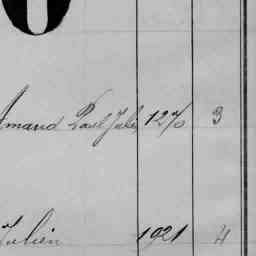 O
Amand Paul Jules 1270 3
Julien 1921 4